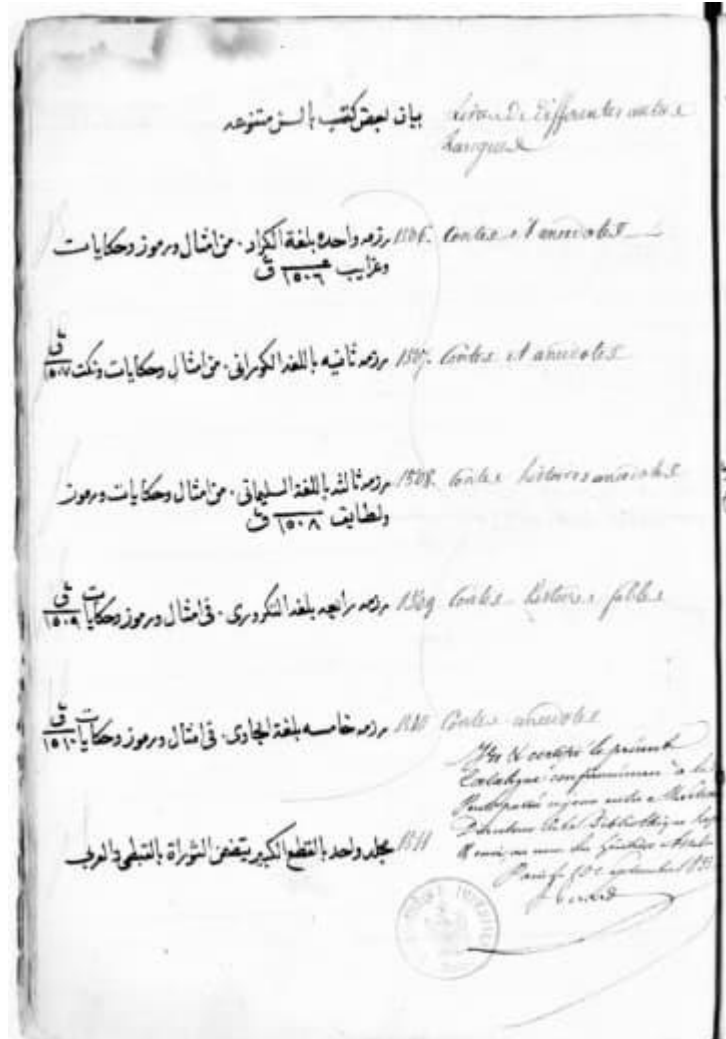 بيان لبعض كتب بالسن متنوعه
Livres de differentes autres
Langues
رزمه واحده بلغة الكراد . من امثال ورموز وحكايات
وغرايب ١٥٠٦ ق
1506. Contes et anecdotes
رزمه ثانيه باللغه الكورانى . من امثال وحكايات ونكت ق ١٥٠٧
1507. Contes et anecdotes
رزمه ثالثه باللغة السليمانى . من امثال وحكايات ورموز
ولطايف ١٥٠٨ ق
1508. Contes histoires anecdotes
رزمه رابعه بلغه التكرورى . فى امثال ورموز وحكايات ق ١٥٠٩
1509 Contes histoires fables
رزمه خامسه بلغة الجاوى . فى امثال ورموز وحكايات ق ١٥١٠
1510 Contes anecdotes
مجلد واحد بالقطع الكبير يتضمن التوراة بالقبطى والعربى
1511
certifié le présent
Catalogue conformément à la
Bibliothèque
Paris